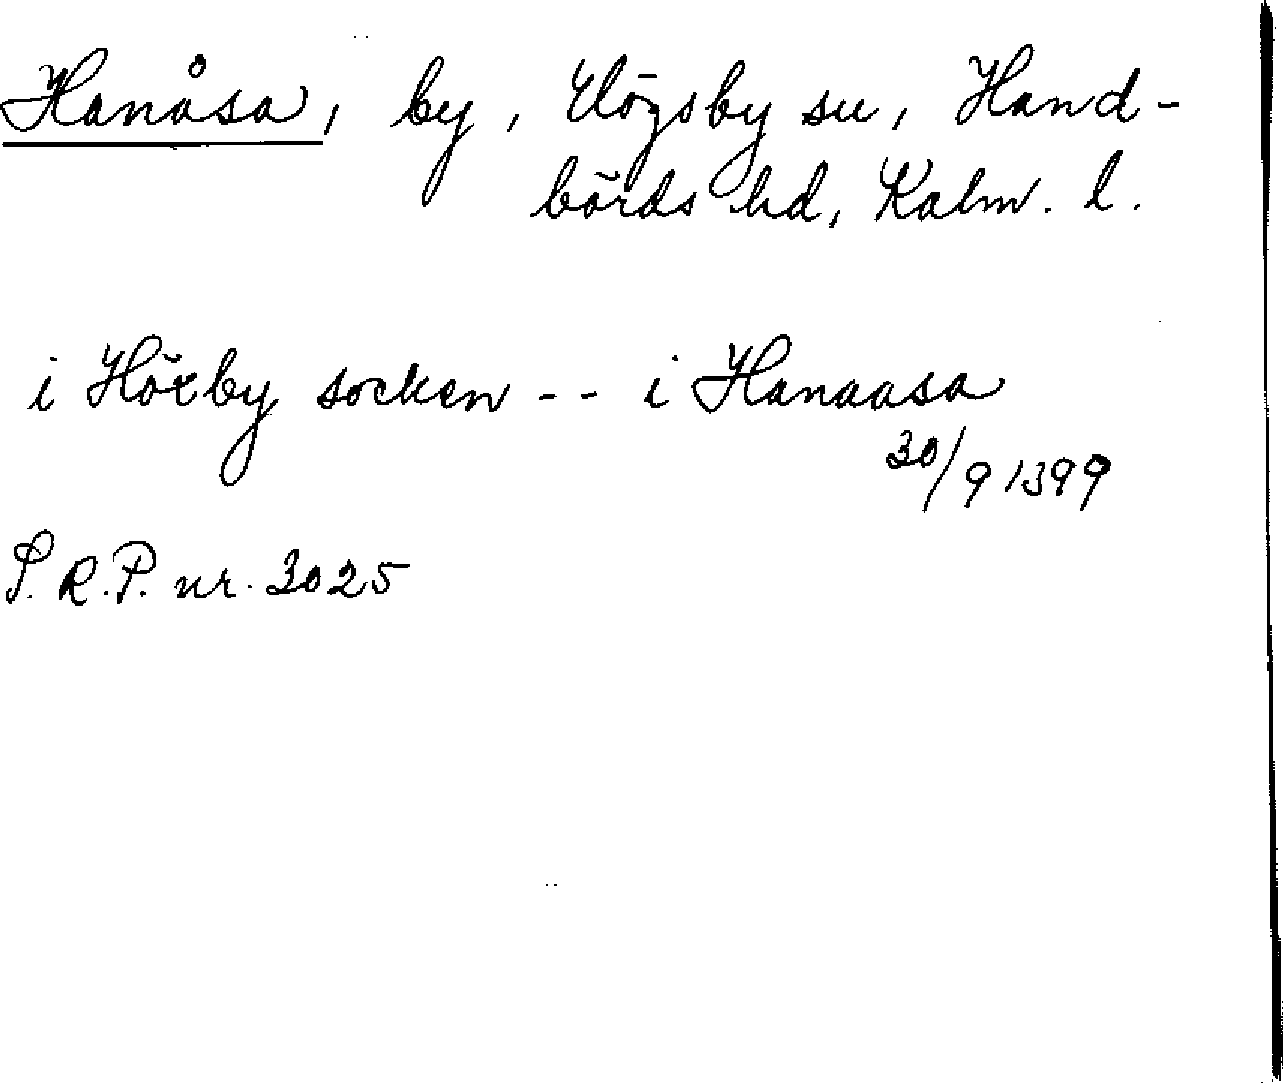 Hanåsa, by, Högsby sn, Hand-
börds hd, Kalm. l.
i Höxby socken - - i Hanaasa
30/9 1399
S.R.P. nr. 3025